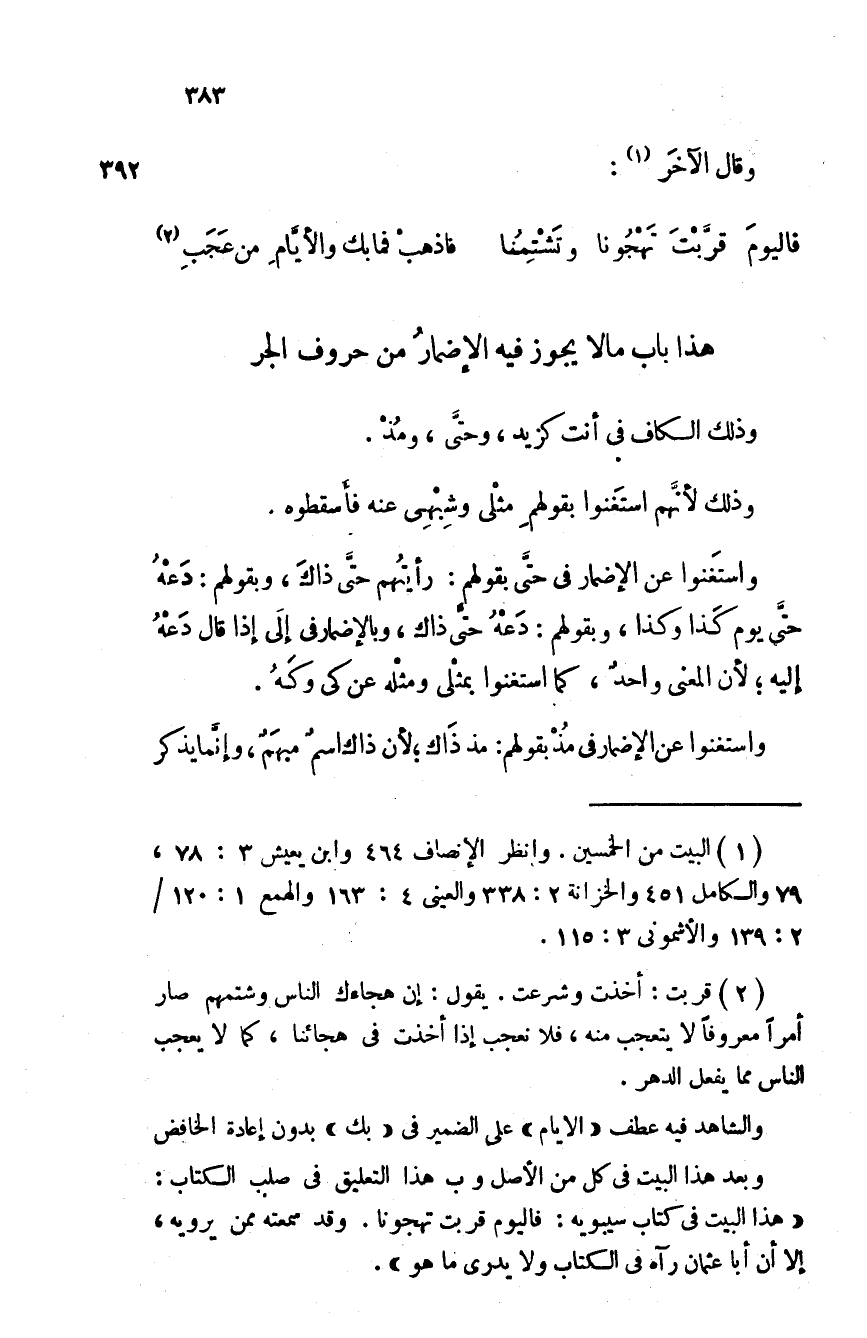 ٣٨٣
وقال الآخَر (١) :
٣٩٢
فاليومَ قرَّبْتَ تَهْجُونا وتَشْتِمُنا فاذهبْ فمابك والأيَّامِ من عَجَبِ (٢)
هذا باب مالا يجوز فيه الإضمارُ من حروف الجر
وذلك الكاف في أنت كزيد ، وحتَّى ، ومُذْ .
وذلك لأنَّهم استَغنوا بقولهمِ مثْلى وشِبْهِى عنه فأَسقطوه .
واستَغنوا عن الإضمار فى حتَّى بقولهم : رأيتُهم حتَّى ذاكَ ، وبقولهم : دَعْهُ
حتَّى يوم كَذا وكذا ، وبقولهم : دَعْهُ حتَّى ذاك ، وبالإضمار فى إلَى إذا قال دَعْهُ
إليه ؛ لأن المعنى واحدٌ ، كما استغنوا بمثْلى ومثْله عن كى وكَهُ .
واستغنوا عن الإضمار فى مُذْ بقولهم : مذ ذَاك ؛ لأن ذاك اسمٌ مبهَمٌ ، وإنَّما يذكر
( ١ ) البيت من الخمسين . وانظر الإنصاف ٤٦٤ وابن يعيش ٣ : ٧٨ ،
٧٩ والكامل ٤٥١ والخزانة ٢ : ٣٣٨ والعينى ٤ : ١٦٣ والهمع ١ : ١٢٠ /
٢ : ١٣٩ والأشمونى ٣ : ١١٥ .
( ٢ ) قربت : أخذت وشرعت . يقول : إن هجاءك الناس وشتمهم صار
أمراً معروفاً لا يتعجب منه ، فلا نعجب إذا أخذت فى هجائنا ، كما لا يعجب
الناس مما يفعل الدهر .
والشاهد فيه عطف « الايام » على الضمير فى « بك » بدون إعادة الخافض
وبعد هذا البيت فى كل من الأصل و ب هذا التعليق فى صلب الكتاب :
« هذا البيت فى كتاب سيبويه : فاليوم قربت تهجونا . وقد سمعته ممن يرويه ،
إلا أن أبا عثمان رآه فى الكتاب ولا يدرى ما هو » .